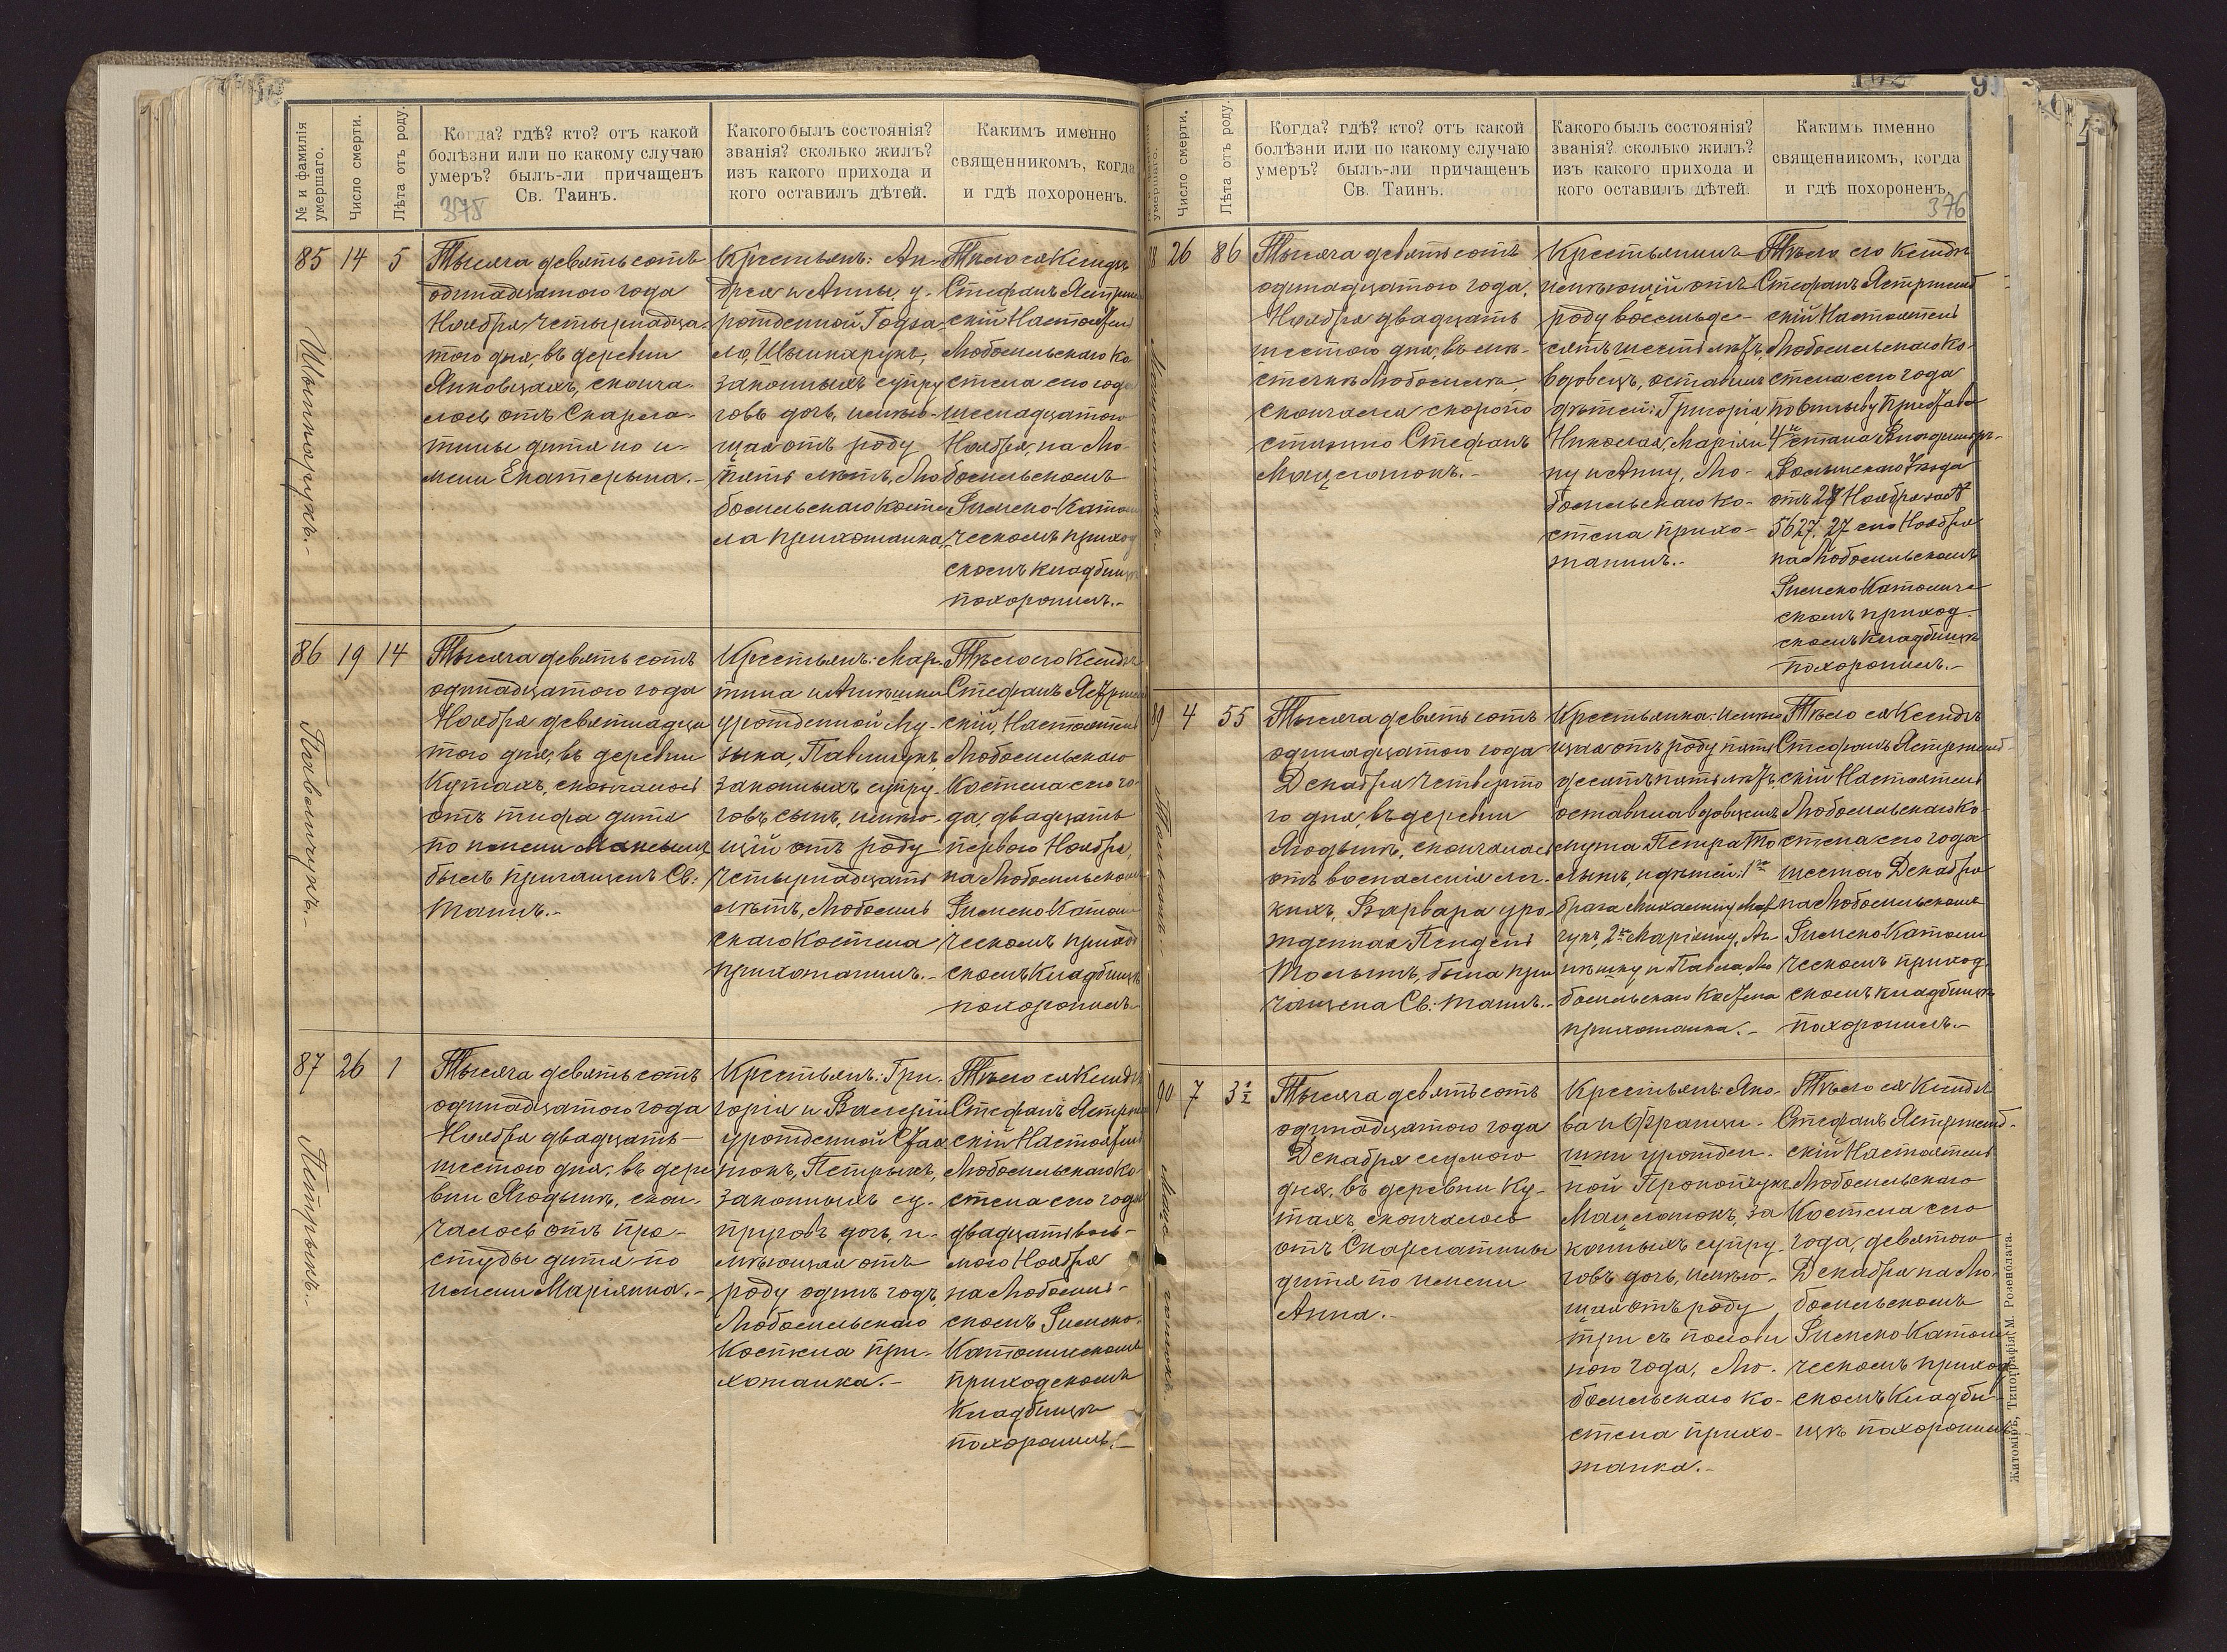 № и фамилія умершаго.
Число смерти.
Лѣта отъ роду.
Когда? гдѣ? кто? отъ какой
болѣзни или по какому случаю
умеръ? былъ-ли причащенъ
Св. Таинъ.
375
Какого былъ состоянія?
званія? сколько жилъ?
изъ какого прихода и
кого оставилъ дѣтей.
Какимъ именно
священникомъ, когда
и гдѣ похороненъ.
85
14
5
Тысяча девятьсотъ
одинадцатого года
Ноября четырнадца-
того дня, въ деревни
Янковцахъ, сконча-
лось отъ Скарла-
тины дитя по и-
мени Екатерына.-
Крестьянъ: Ан-
дрея и Анны, у-
рожденной Годза
законныхъ супру
говъ дочь, имѣю-
щая отъ роду
пять лѣтъ, Лю
бомльскаго косте
ла прихожанка
Тѣло ея Ксендзъ
Стефанъ
скій Настоятель
Любомльскаго Ко
стела сего года
шеснадцатого
Ноября, на Лю-
бомльскомъ
Римско-Катол
ческомъ приход
скомъ кладбищѣ
похоронилъ.-
86
19
14
Павлищукъ.-
Тысяча девятьсотъ
одинадцатого года
Ноября девятнадца
того дня, въ деревни
Кутахъ, скончалось
отъ тифа дитя
по имени
былъ причащенъ Св:
Таинъ.-
Крестьянъ: Мар-
тина и
урожденной Му-
зыка, Павлищукъ,
законныхъ супру-
говъ сынъ, имѣю-
щій отъ роду
четырнадцать
лѣтъ, Любомль
скаго Костела
прихожанинъ.-
Тѣло его Ксендзъ
Стефанъ
скій, Настоятель
Любомльскаго
Костела сего го-
да, двадцать
первого Ноября,
на Любомльском
Римско Катол
ческомъ приход
скомъ Кладбищѣ
похоронилъ.-
87
26
1
Петрыкъ.-
Тысяча девятьсотъ
одинадцатого года
Ноября двадцать-
шестого дня, въ дере
вни Ягодынѣ, скон-
чалось отъ про-
студы дитя по
имени Маріянна.-
Крестьянъ: Гри-
горія и Валеріи
урожденной
Петрыкъ,
законныхъ су-
пруговъ дочь, и-
мѣющая отъ
роду одинъ годъ,
Любомльскаго
Костела при-
хожанка.-
Тѣло ея Ксендзъ
Стефанъ
скій Настоятель
Любомльскаго Ко
стела сего года
двадцать вось-
мого Ноября
на Любомль-
скомъ Римско-
Католическомъ
приходскомъ
Кладбищѣ
похоронилъ.-
умершаго.
Число смерти.
Лѣта отъ роду.
Когда? гдѣ? кто? отъ какой
болѣзни или по какому случаю
умеръ? былъ-ли причащенъ
Св. Таинъ.
Какого былъ состоянія?
званія? сколько жилъ?
изъ какого прихода и
кого оставилъ дѣтей.
Какимъ именно
священникомъ, когда
и гдѣ похороненъ.
376
26
86
Тысяча девятьсотъ
одинадцатого года,
Ноября двадцать
шестого дня, въ мѣ-
стечкѣ Любомлѣ,
скончался скоропо
стижно Стефанъ
Мацелюкъ.-
Крестьянинъ
имѣющій отъ
роду восемьде-
сятъ шесть лѣтъ,
вдовецъ, оставилъ
дѣтей: Григорія,
Николая, Маріян
ну и Анну, Лю-
бомльскаго Ко-
стела прихо-
жанинъ.-
Тѣло его Ксендзъ
Стефанъ Ястржемб
скій Настоятель
Любомльскаго Ко-
стела сего года
по отзыву Пристава
4го стана Владимиръ-
Волынскаго Уѣзда
отъ 27 Ноября за №
5627. 27 сего Ноября
на Любомльскомъ
Римско Католиче
скомъ приход-
скомъ кладбищѣ
похоронилъ.-
4
55
Тысяча девятьсотъ
одинадцатого года
Декабря четверто
го дня, въ деревни
Ягодынѣ, скончалась
отъ воспаленія лег-
кихъ, Варвара уро-
жденная
была при
чащена Св. Таинъ.-
Крестьянка: имѣю
щая отъ роду пять
десятъ пять лѣтъ,
оставила вдовцемъ
мужа Петра
и дѣтей: 1го
брака
2го Маріянну,
и Павла, Лю
бомльскаго Костела
прихожанка.-
Тѣло ея Ксендзъ
Стефанъ Ястржемб-
скій Настоятель
Любомльскаго Ко-
стела сего года
шестого Декабря
на Любомльскомъ
Римско Католи
ческомъ приход-
скомъ кладбищѣ
похоронилъ.-
90
7
3½
Тысяча девятьсотъ
одинадцатого года
Декабря седмого
дня, въ деревни Ку-
тахъ скончалось
отъ Скарлатины
дитя по имени
Анна.-
Крестьянъ: Яко-
ва и Франци-
шки урожден-
ной Прокопчукъ
Мацелюкъ, за
конныхъ супру-
говъ дочь, имѣю-
щая отъ роду
три съ полови
ною года, Лю-
бомльскаго Ко-
стела прихо-
жанка.-
Тѣло ея Ксендзъ
Стефанъ Ястржемб-
скій Настоятель
Любомльскаго
Костела сего
года, девятого
Декабря на Лю-
бомльскомъ
Римско Католи
ческомъ приход
скомъ Кладби-
щѣ похоронилъ.-
Житоміръ, Типографія М. Розенблата.